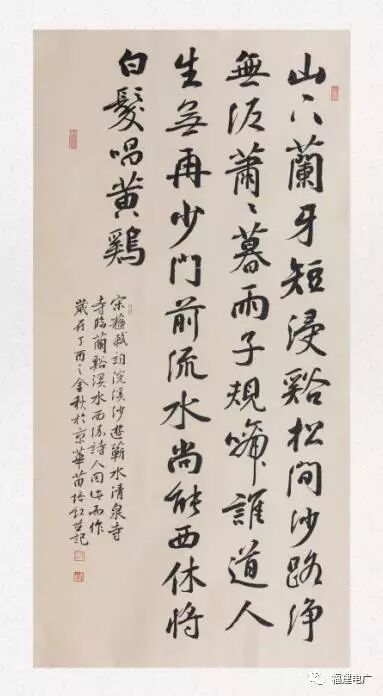 山下蘭牙短浸谿松間沙路净
無泥蕭〻暮雨子規啼誰道人
生無再少門前流水尚能西休將
白髮唱黃鷄
宋蘇軾詞浣溪沙遊蘄水清泉寺
寺臨蘭谿溪水西流詩人因此而作
歲在丁酉之金秋於京華苗培红並記
福建电广